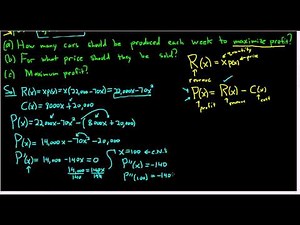 (a) How many cars should be produced each week to maximize profit?
(b) For what price should they be sold?
(c) Maximum profit?
R(x) = x p(x)
quantity
price
revenue
P(x) = R(x) - C(x)
profit revenue cost
Sol R(x) = x p(x) = x(22,000 - 70x) = 22,000x - 70x²
C(x) = 8000x + 20,000
P(x) = 22,000x - 70x² - (8000x + 20,000)
P(x) = 14,000x - 70x² - 20,000
P'(x) = 14,000 - 140x = 0
14,000/140 = 140x/140
x = 100 ← C.N.
P''(x) = -140
P''(100) = -140